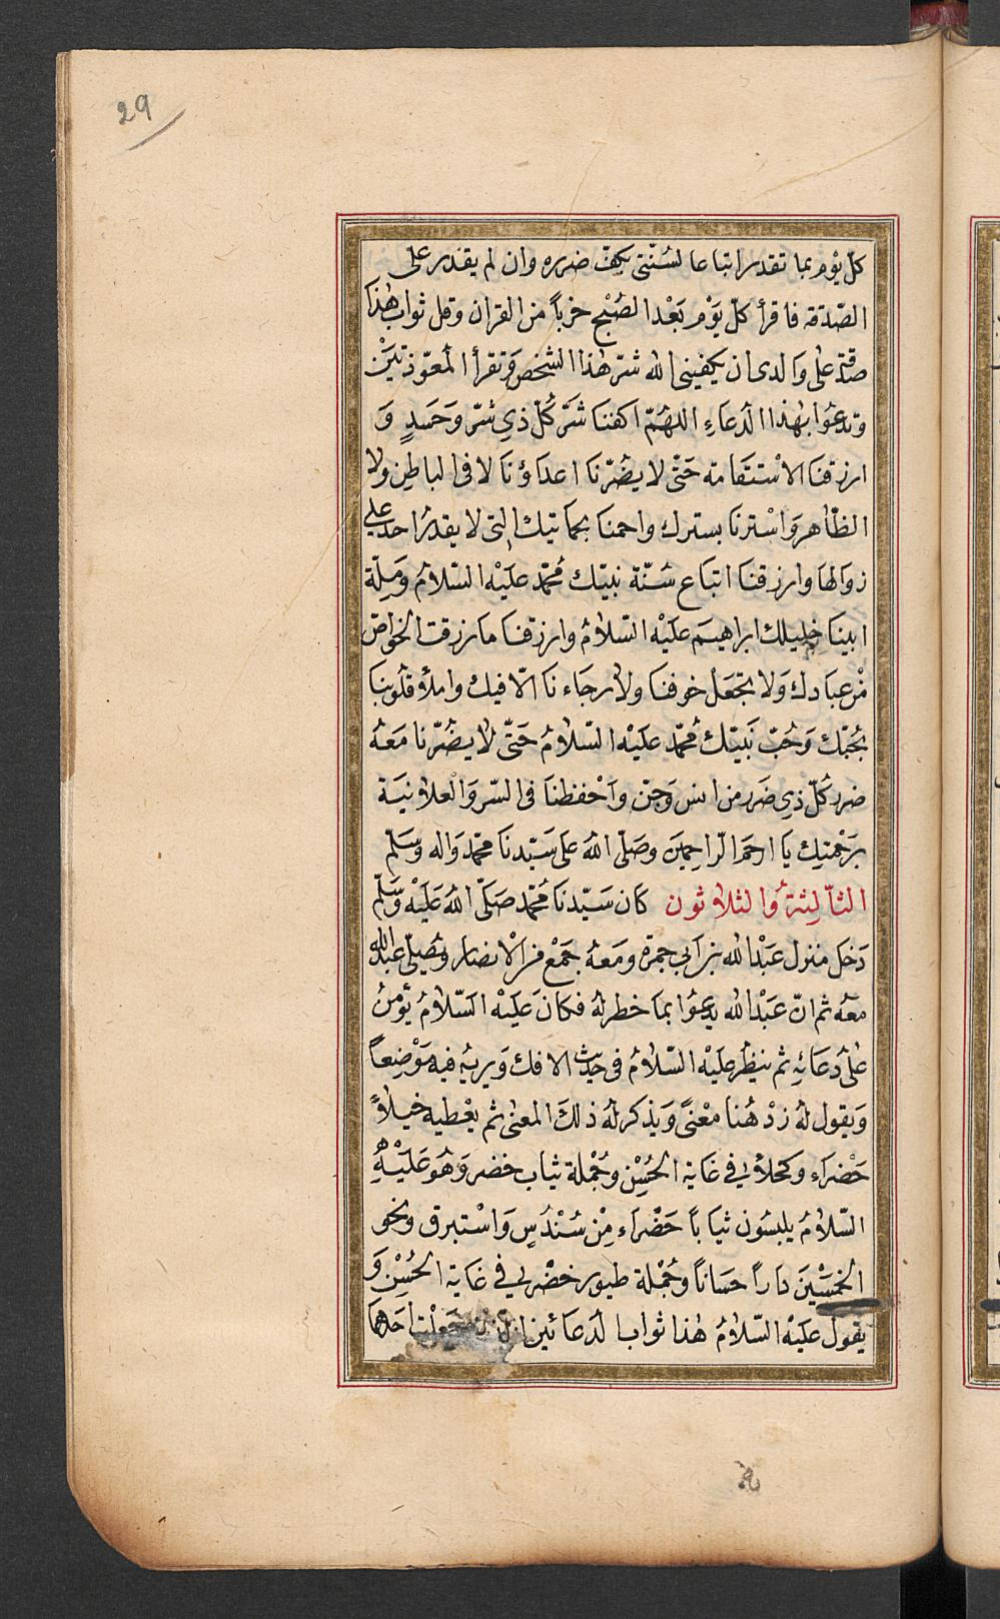 29
كلّ يوْم بما تقدر اتباعا لسُنّتى يكفّ ضرره وان لم يقدر على
الصّدقه فاقرأ كلّ يَوْم بَعْد الصُبْح حزباً من القران وقل ثواب هٰذا
صدقة على والدى ان يكفينى الله شر هٰذا الشخص وتقرأ المعوّذتيَن
وتدعُوا بهٰذا الدّعاءِ اللهُمّ اكفنا شَرَّ كُلّ ذِي شرّ وَحَسَدٍ وَ
ارزقنا الاسْتقامة حَتّى لا يضُرّنا اعداؤنا لا فى الباطِن ولا
الظّاهر وَاسْترنا بسترك واحمنا بحمايتك التى لا يقدرُ احد على
زوالها وارزقنا اتباع سُنّة نبيّك مُحمّد عليْه السّلامُ وَمِلّة
ابينا خليلك ابراهيمَ عليْه السّلامُ وارزقنا ما رزقت الخواصّ
مْن عبادك وَلا تجْعَلْ خوفنا ولا رجَاءنا الّا فيك واملأ قلوبنا
بحُبّك وَحُبّ نَبيّك مُحمّد عليْه السّلامُ حَتّى لا يضُرّنا مَعَهُ
ضرر كُلّ ذِي ضَرر من انس وَجنّ واَحْفظنا فى السّر وَالعلانيَة
برَحْمتِك يا ارحَم الرّاحمِيَن وصَلّى اللهُ على سَيّدنا محمّد وَاله وسَلّم
الثّالِثةُ والثلاثون كان سَيّدنا مُحمّد صَلّى اللهُ عَليْه وَسَلّم
دَخل منزل عَبْد الله بن اَبي جمرة ومَعهُ جمْع من الانصار وَيُصلّى عبد الله
معَه ثم انّ عَبْد الله يدعُوا بما خطر لهُ فكانَ عليْه السّلامُ يؤمنُ
علىٰ دُعَائهِ ثم ينظر عليْه السّلامُ فى حديث الافك وَيريه فيه مَوْضِعاً
وَيقول لهُ زدْ هُنا معْنىً وَيذكر لهُ ذلكَ المعنى ثم يعْطيه خيلاً
خَضْراء وكحلاً في غايَة الحُسْن وجُمْلة ثياب خضر وَهُوَ عَليْهِ
السّلامُ يلبسُون ثياباً خَضْراء مِنْ سُنْدُسٍ وَاسْتبرق ونحو
الخمسْينَ داراً حسَاناً وجُمْلة طيور خضْر في غاية الحُسْن وَ
يقول عليْه السّلامُ هٰذا ثواب الدّعائين جَعلْت احَدهُمَا